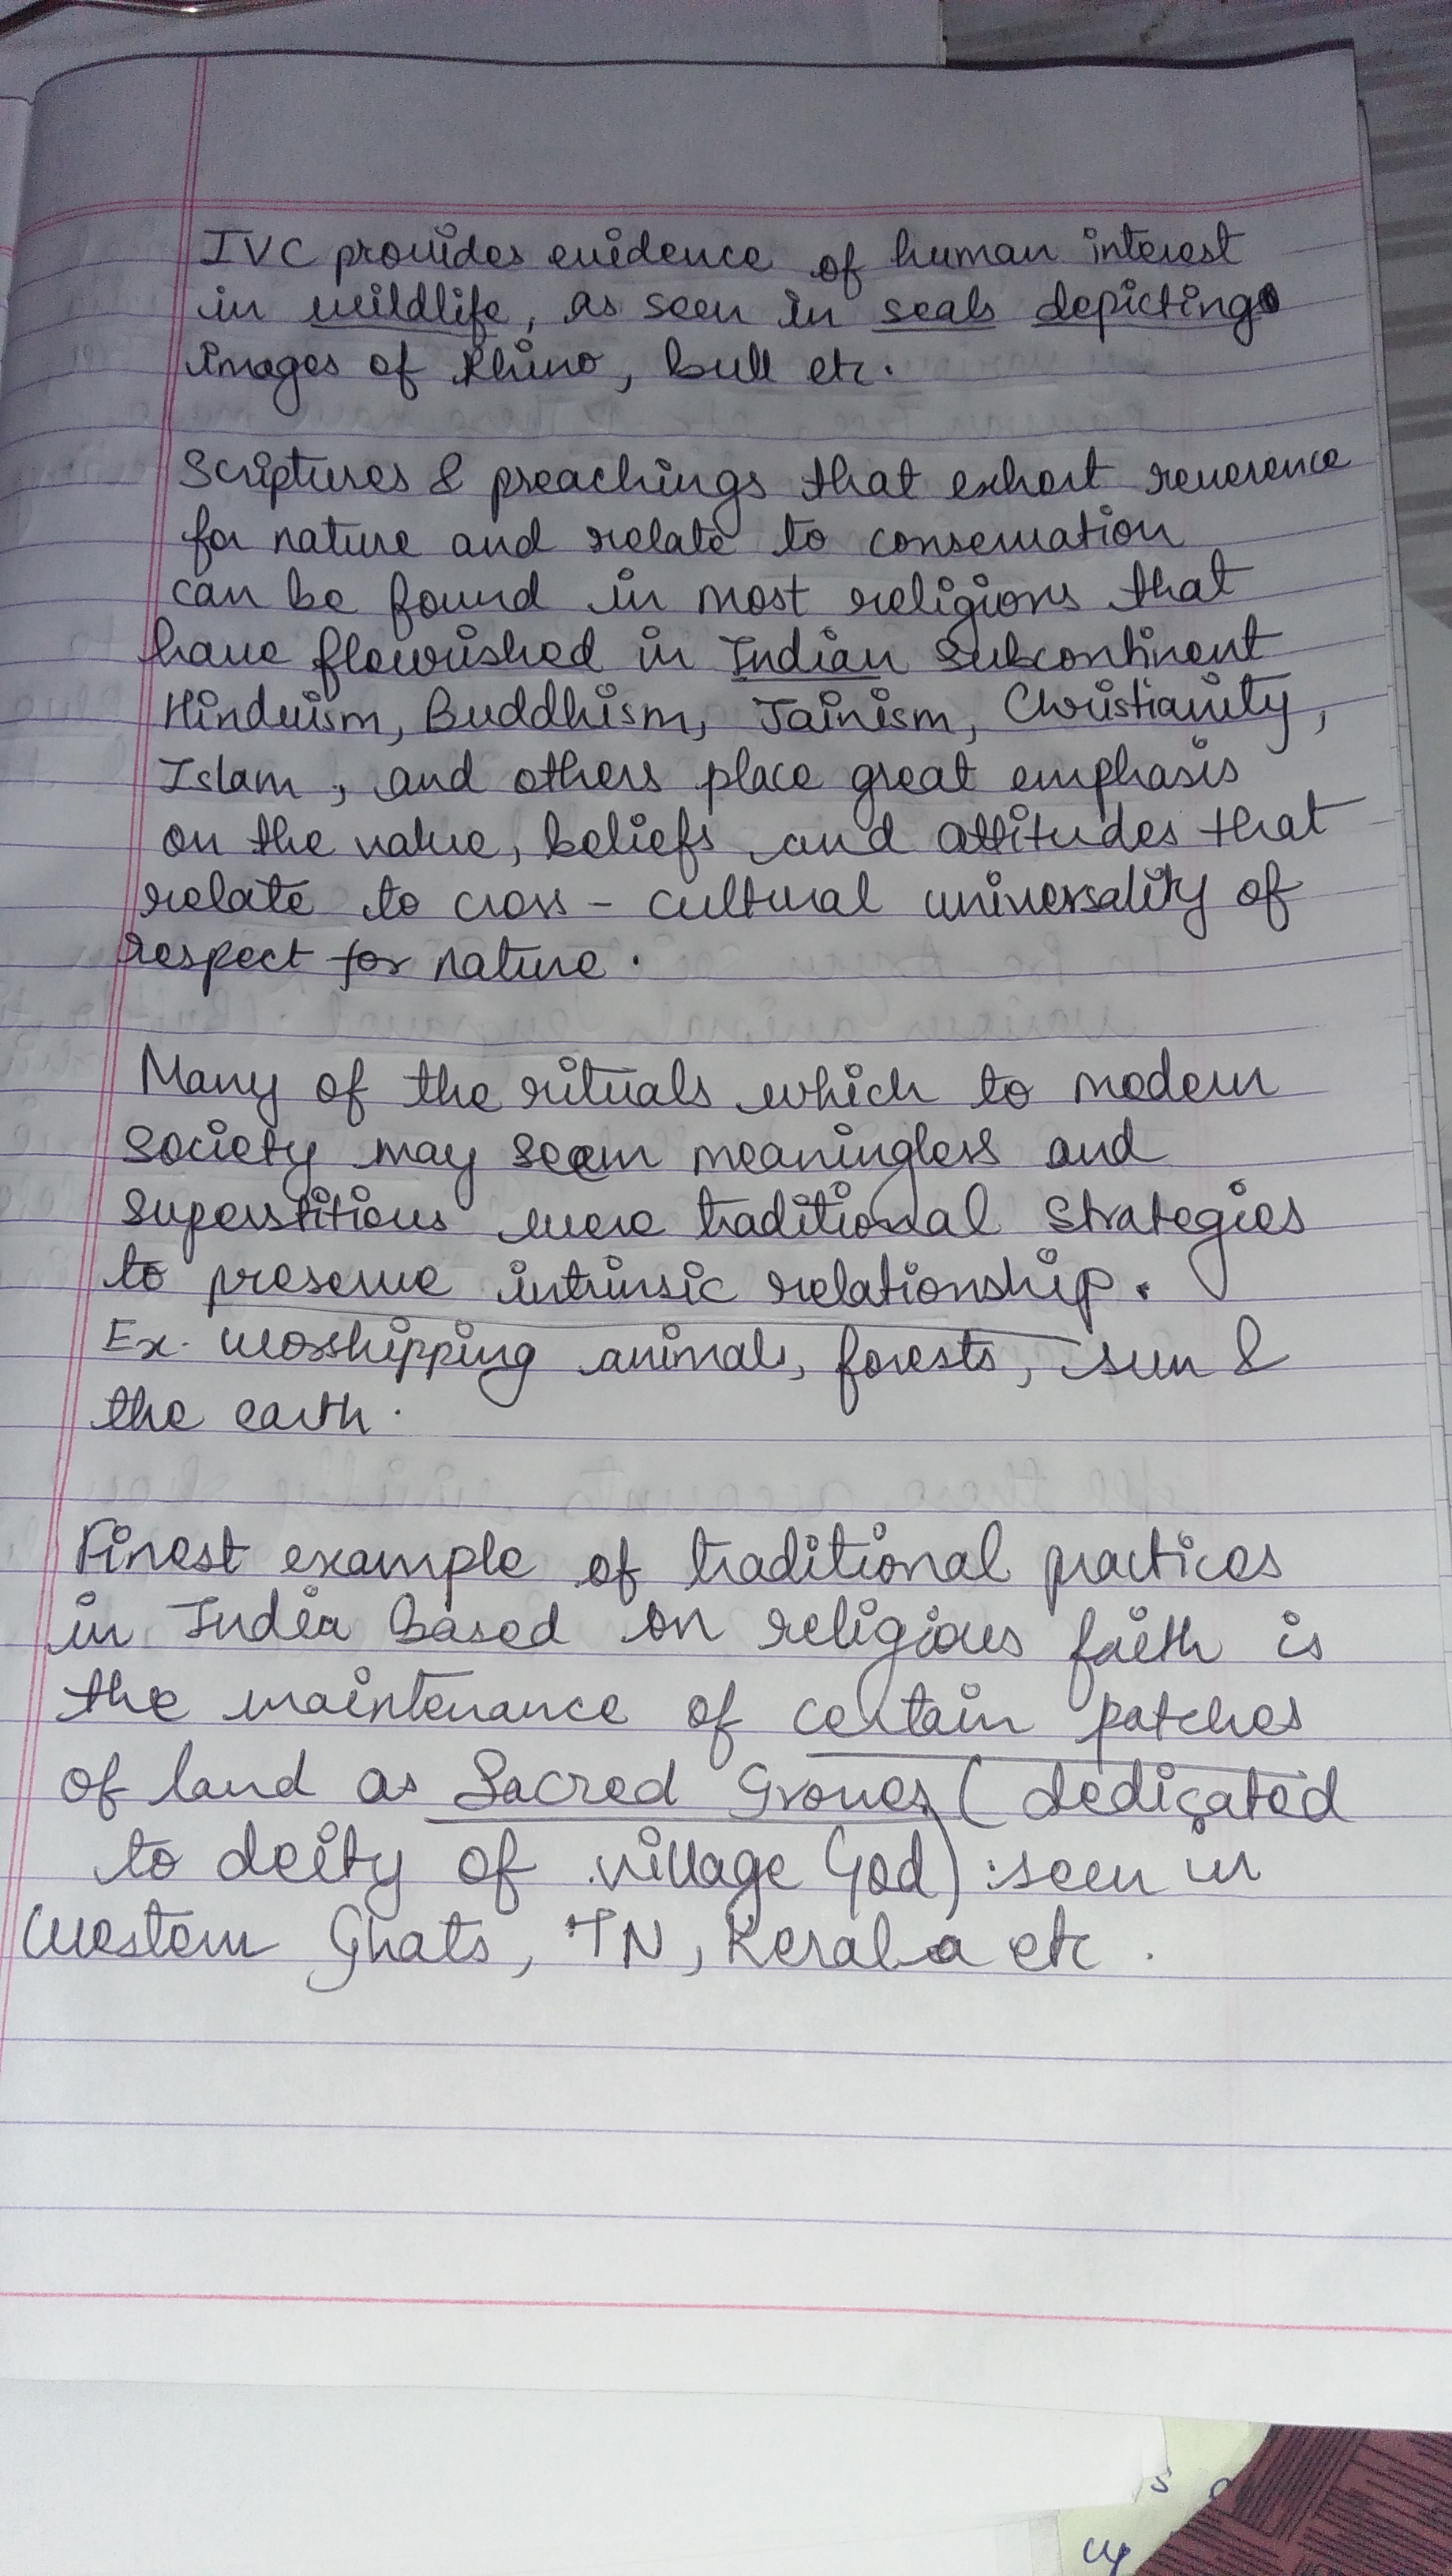 IVC provides evidence of human interest
in wildlife, as seen in seals depicting
images of Rhino, bull etc.
Scriptures & preachings that exhort reverence
for nature and relate to conservation
can be found in most religions that
have flourished in Indian Subcontinent
Hinduism, Buddhism, Jainism, Christianity,
Islam, and others place great emphasis
on the value, beliefs and attitudes that
relate to cross - cultural universality of
respect for nature.
Many of the rituals which to modern
society may seem meaningless and
superstitious were traditional strategies
to preserve intrinsic relationship.
Ex. worshipping animals, forests, sun &
the earth.
Finest example of traditional practices
in India based on religious faith is
the maintenance of certain patches
of land as Sacred Groves (dedicated
to deity of village God) seen in
Western Ghats, TN, Kerala etc.